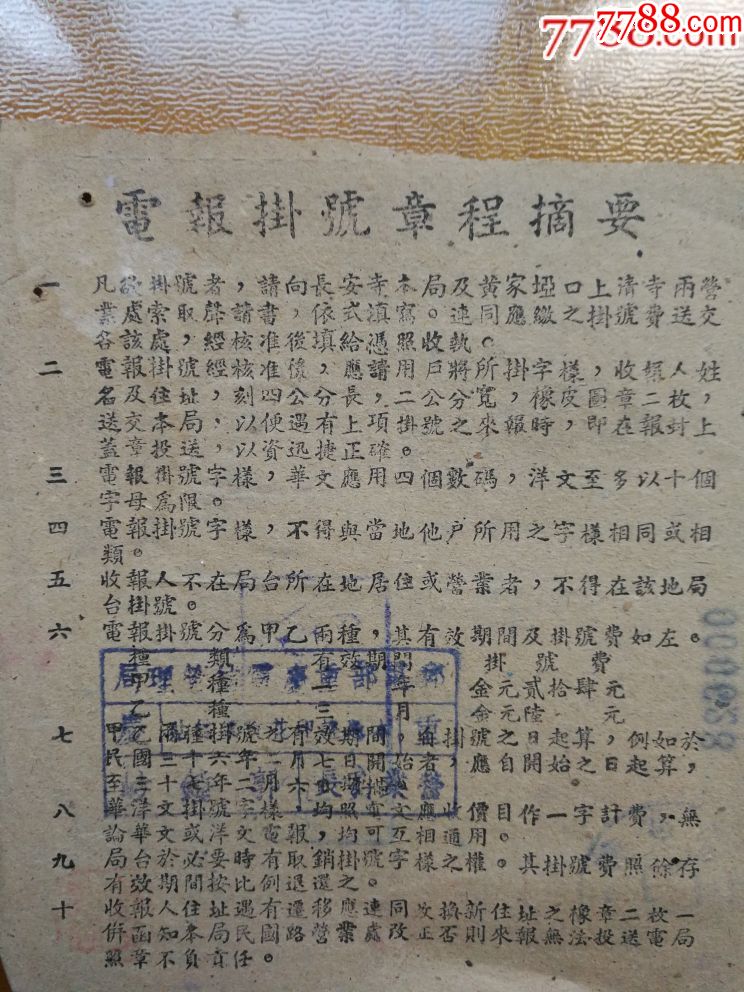 7788.com
7788.com
電報掛號章程摘要
一 凡欲掛號者，請向長安寺本局及黃家埡口上清寺兩營
業處索取聲請書，依式填寫。連同應繳之掛號費送交
各該處，經核准後填給憑照收執。
二 電報掛號經核准後，應請用戶將所掛字樣，收報人姓
名及住址，刻四公分長，二公分寬，橡皮圖章二枚，
送交本局，以便遇有上項掛號之來報時，即在報封上
蓋章投送，以資迅捷正確。
三 電報掛號字樣，華文應用四個數碼，洋文至多以十個
字母爲限。
四 電報掛號字樣，不得與當地他户所用之字樣相同或相
類。
五 收報人不在局台所在地居住或營業者，不得在該地局
台掛號。
六 電報掛號分爲甲乙兩種，其有效期間及掛號費如左。
種類 有效期間 掛號費
甲種 一年 金元貳拾肆元
乙種 三月 金元陸元
七 甲乙兩種掛號之有效期間，自掛號之日起算，例如於
民國三十六年
至
八 華洋文掛號字樣，均照 文應收價目作一字計費，無
論華文或洋文電報均可互相通用。
九 局台於必要時有取銷掛號字樣之權。其掛號費照餘存
有效期間按比例退還之。
十 收報人住址遇有遷移應連同改換新住址之橡章二枚一
併函知本局民國路營業處改正否則來報無法投送電局
照章不負責任。
000633